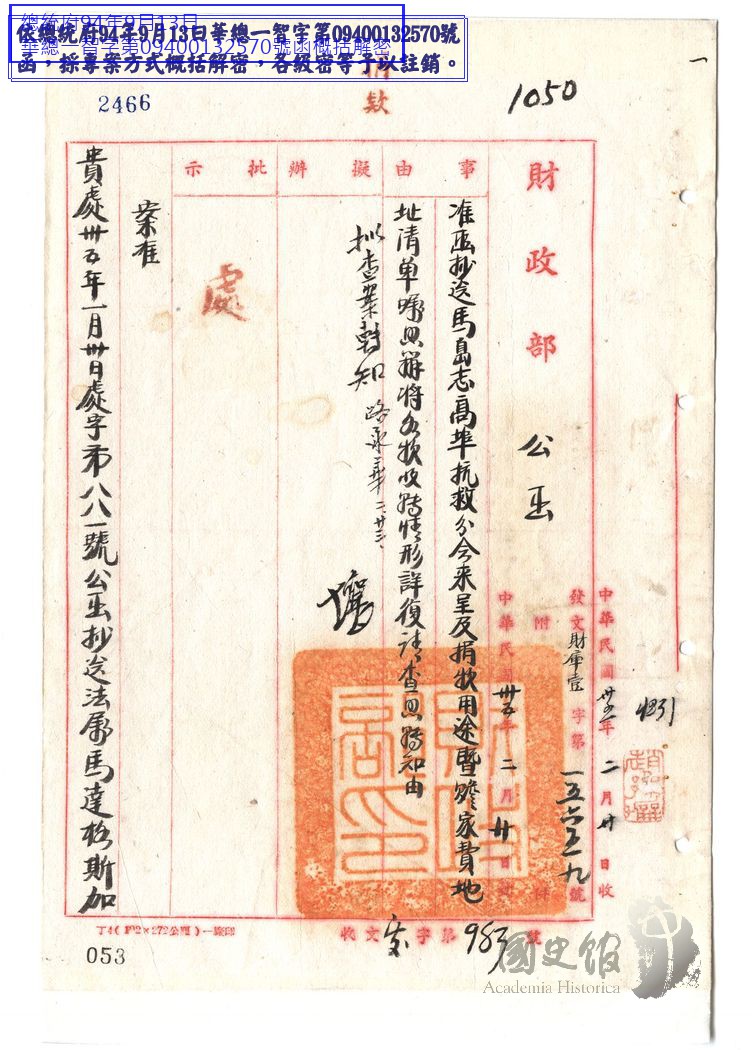 總統府94年9月13日
華總一智字第09400132570號函概括解密
依總統府94年9月13日華總一智字第09400132570號
函，採專案方式概括解密，各級密等予以註銷。
2466
捐款
1050
一
財政部
公函
中華民國卅五年二月廿日收
發文財庫壹字第一五六五九號
附
中華民國卅五年二月廿日
事由
擬辦
批示
准函抄送馬島志高埠抗救分會來呈及捐款用途暨贍家費地
址清單囑照辦將各款收轉情形詳復請查照轉知由
擬查案轉知
路永華二、廿三、
處
案准
貴處卅五年一月卅日處字第八八一號公函抄送法屬馬達格斯加
收文字第983號
丁4(192×272公厘)
053
國史館
Academia Historica